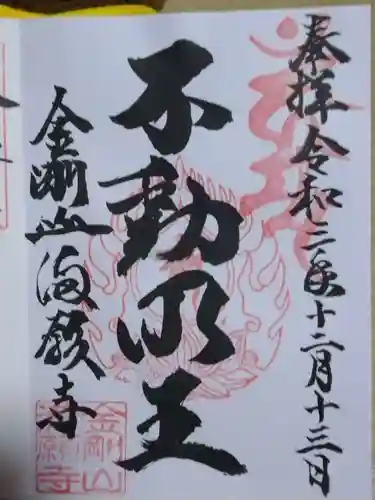 奉拝 令和三年十二月十三日
不動明王
金剛山満願寺
金剛山